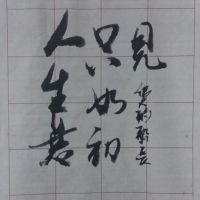 人生若
只如初
見